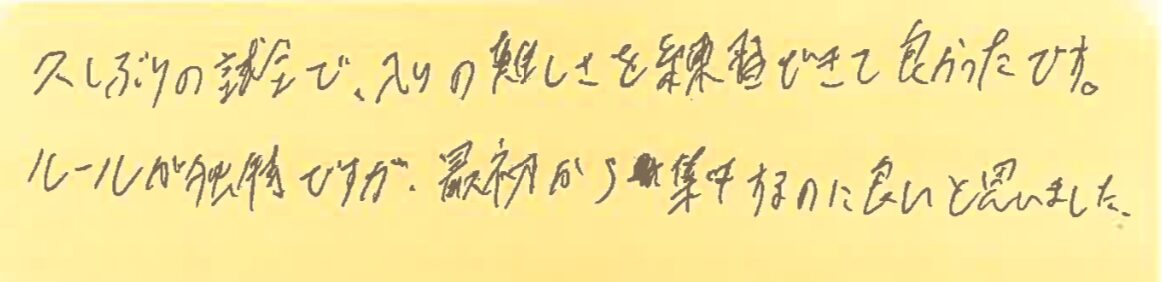 久しぶりの試合で、入りの難しさを練習できて良かったです。
ルールが独特ですが、最初から集中するのに良いと思いました、